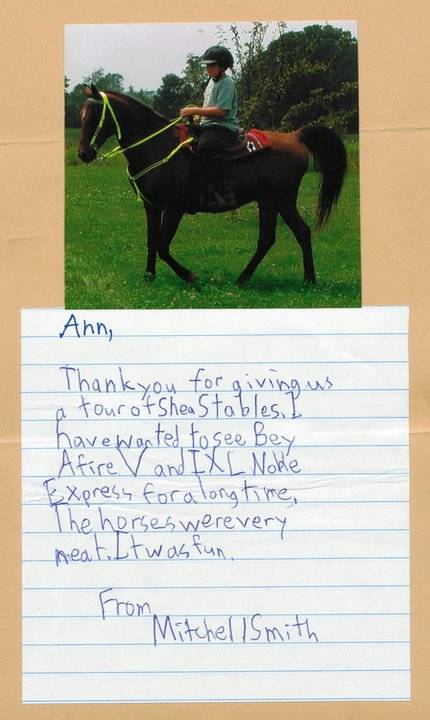 Ann,
Thank you for giving us
a tour of Shea Stables. I
have wanted to see Bey
Afire V and IXL Noble
Express for a long time.
The horses were very
neat. It was fun.
From
Mitchell Smith